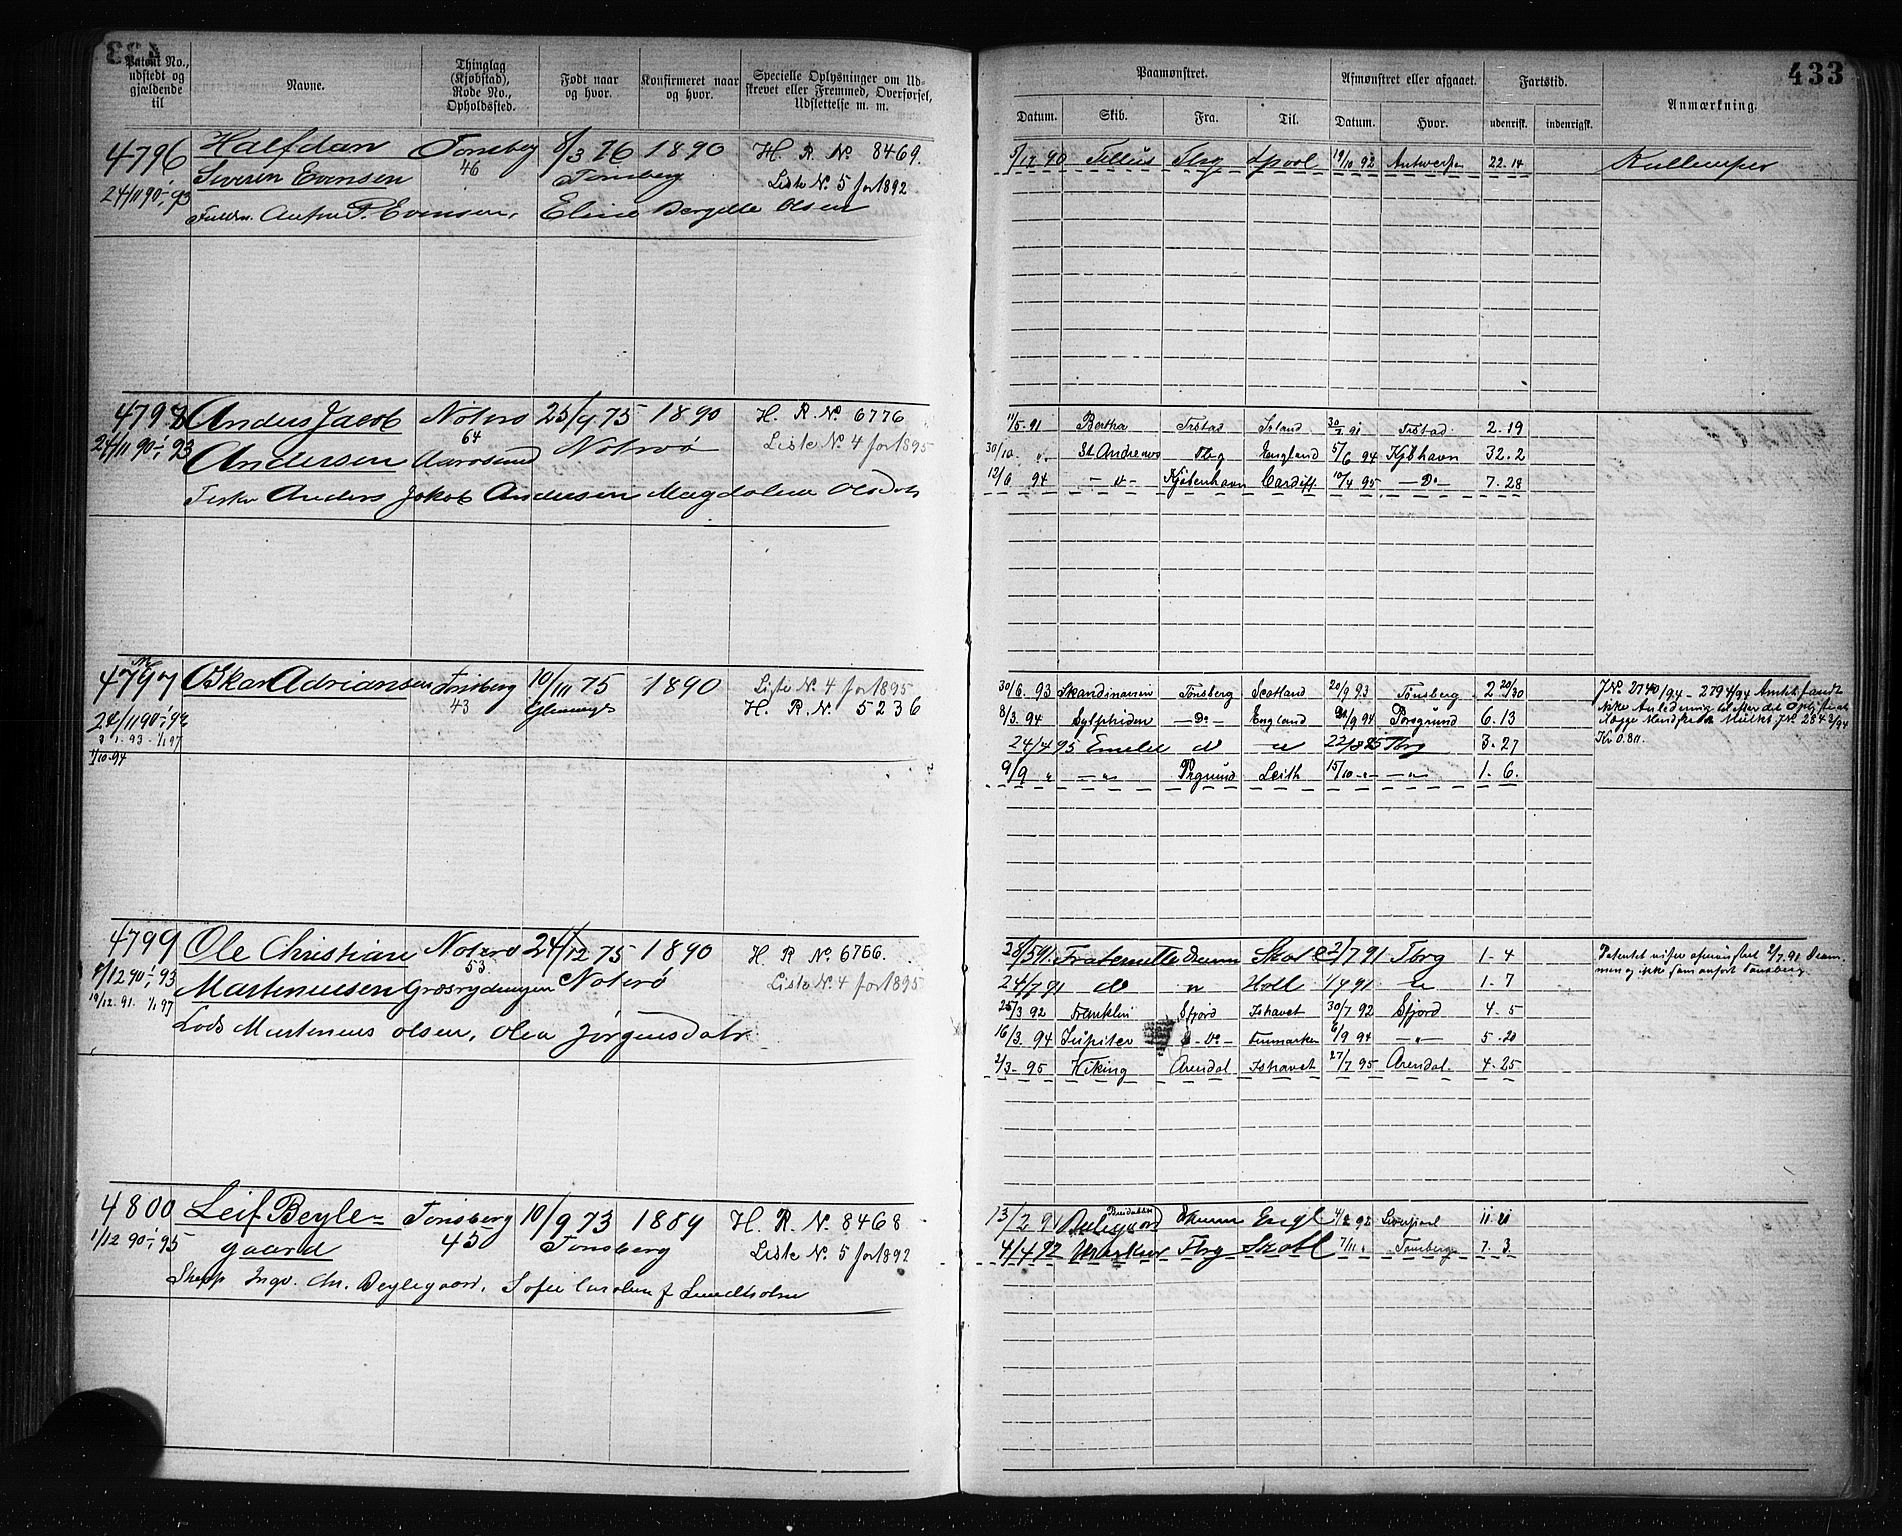 433
Patent No., udstedt og gjældende til
Navne.
Thinglag (Kjøbstad), Rode No., Opholdssted.
Født naar og hvor.
Konfirmeret naar og hvor.
Specielle Oplysninger om Udskrevet eller Fremmed, Overførsel, Udslettelse m. m.
Paamønstret.
Afmønstret eller afgaaet.
Fartstid.
Anmærkning.
Datum. Skib. Fra. Til. Datum. Hvor. udenrigsk. indenrigsk.
4796 Halfdan Tønsberg 8/3 76 1890 H. R. No 8469.
Severin Evensen 46 Tønsberg Liste No. 5 for 1892
24/11 90 - 1/1 93
Evensen, Eline Bergitte Olsen
5/12 90 Tellus Tbrg Lpool 19/10 92 Antwerpen 22.14
4798 Anders Jacob Noterø 25/9 75 1890 H. R. No 6776
24/11 90 - 1/1 93 Andersen 64 Aarøsund Noterø Liste No. 4 for 1895
Fisker Anders Jakob Andersen Magdalena Olsdatr
11/5 91 Bertha Frstad Island 30/7 91 Frstad. 2.19
30/10 " St Andrews Tbg England 5/6 94 Kjbhavn 32.2
12/6 94 - " - Kjøbenhavn Cardiff 10/4 95 - Do - 7.28
4797 Oskar Adriansen Tønsberg 10/11 75 1890 Liste No. 4 for 1895
43 Glemminge H. R. No. 5236
24/11 90 - 1/1 92
3.1.93 - 1/1 97
1/10.94
30/6. 93 Skandinavien Tønsberg Scotland 20/9 93 Tønsberg 2 20/30
8/3. 94 Sylphiden - Do - England 20/9 94 Porsgrund 6.13
24/4 95 Emelie do " 22/8 95 Tbrg 3.27
9/9 " - " - Prgrund Leith 15/10 " - " - 1.6.
J No. 2740/94 - 2794/94 Amtet fandt
ikke Anledning til efter det Oplyste at
ilægge Mandskabet Mulkt, J No. 2843/94
Kr 0.80.
4799 Ole Christian Noterø 24/12 75 1890 H. R. No. 6756.
8/12 90 - 1/1 93 Marteniusen 53 Noterø Liste No. 4 for 1895
19/12. 91. 1/1 97
Lods Martenius Olsen, Olea Jørgensdatr
28/5 91 Fraternitte Dramn Skotl 2/7 91 Tbrg 1-4
24/7 91 do " Holl 1/9 91 " 1-7
25/3 92 Franklin Sfjord Ishavet 30/7 92 Sfjord 4-5
16/3. 94 Jupiter - Do - Finmarken 6/9 94 - " - 5-20
2/3- 95 Viking Arendal Ishavet 27/7 95 Arendal. 4-25
Patentet viser afmønstret 2/7. 91 Dram-
men og ikke som anført Tønsberg
4800 Leif Beyle- Tønsberg 10/9 73 1889 H. R. No. 8468
1/12 90 - 1/1 95 gaard 45 Tønsberg Liste No. 5 for 1892
Skpp Ingv. Chr. Beylegaard, Sofie Caroline f Lundholm
13/2 91 Dramn Engl 4/2 92 Liverpool 11.21
4/4 92 Markur Tbrg Skotl 7/11 " Tønsberg 7.3